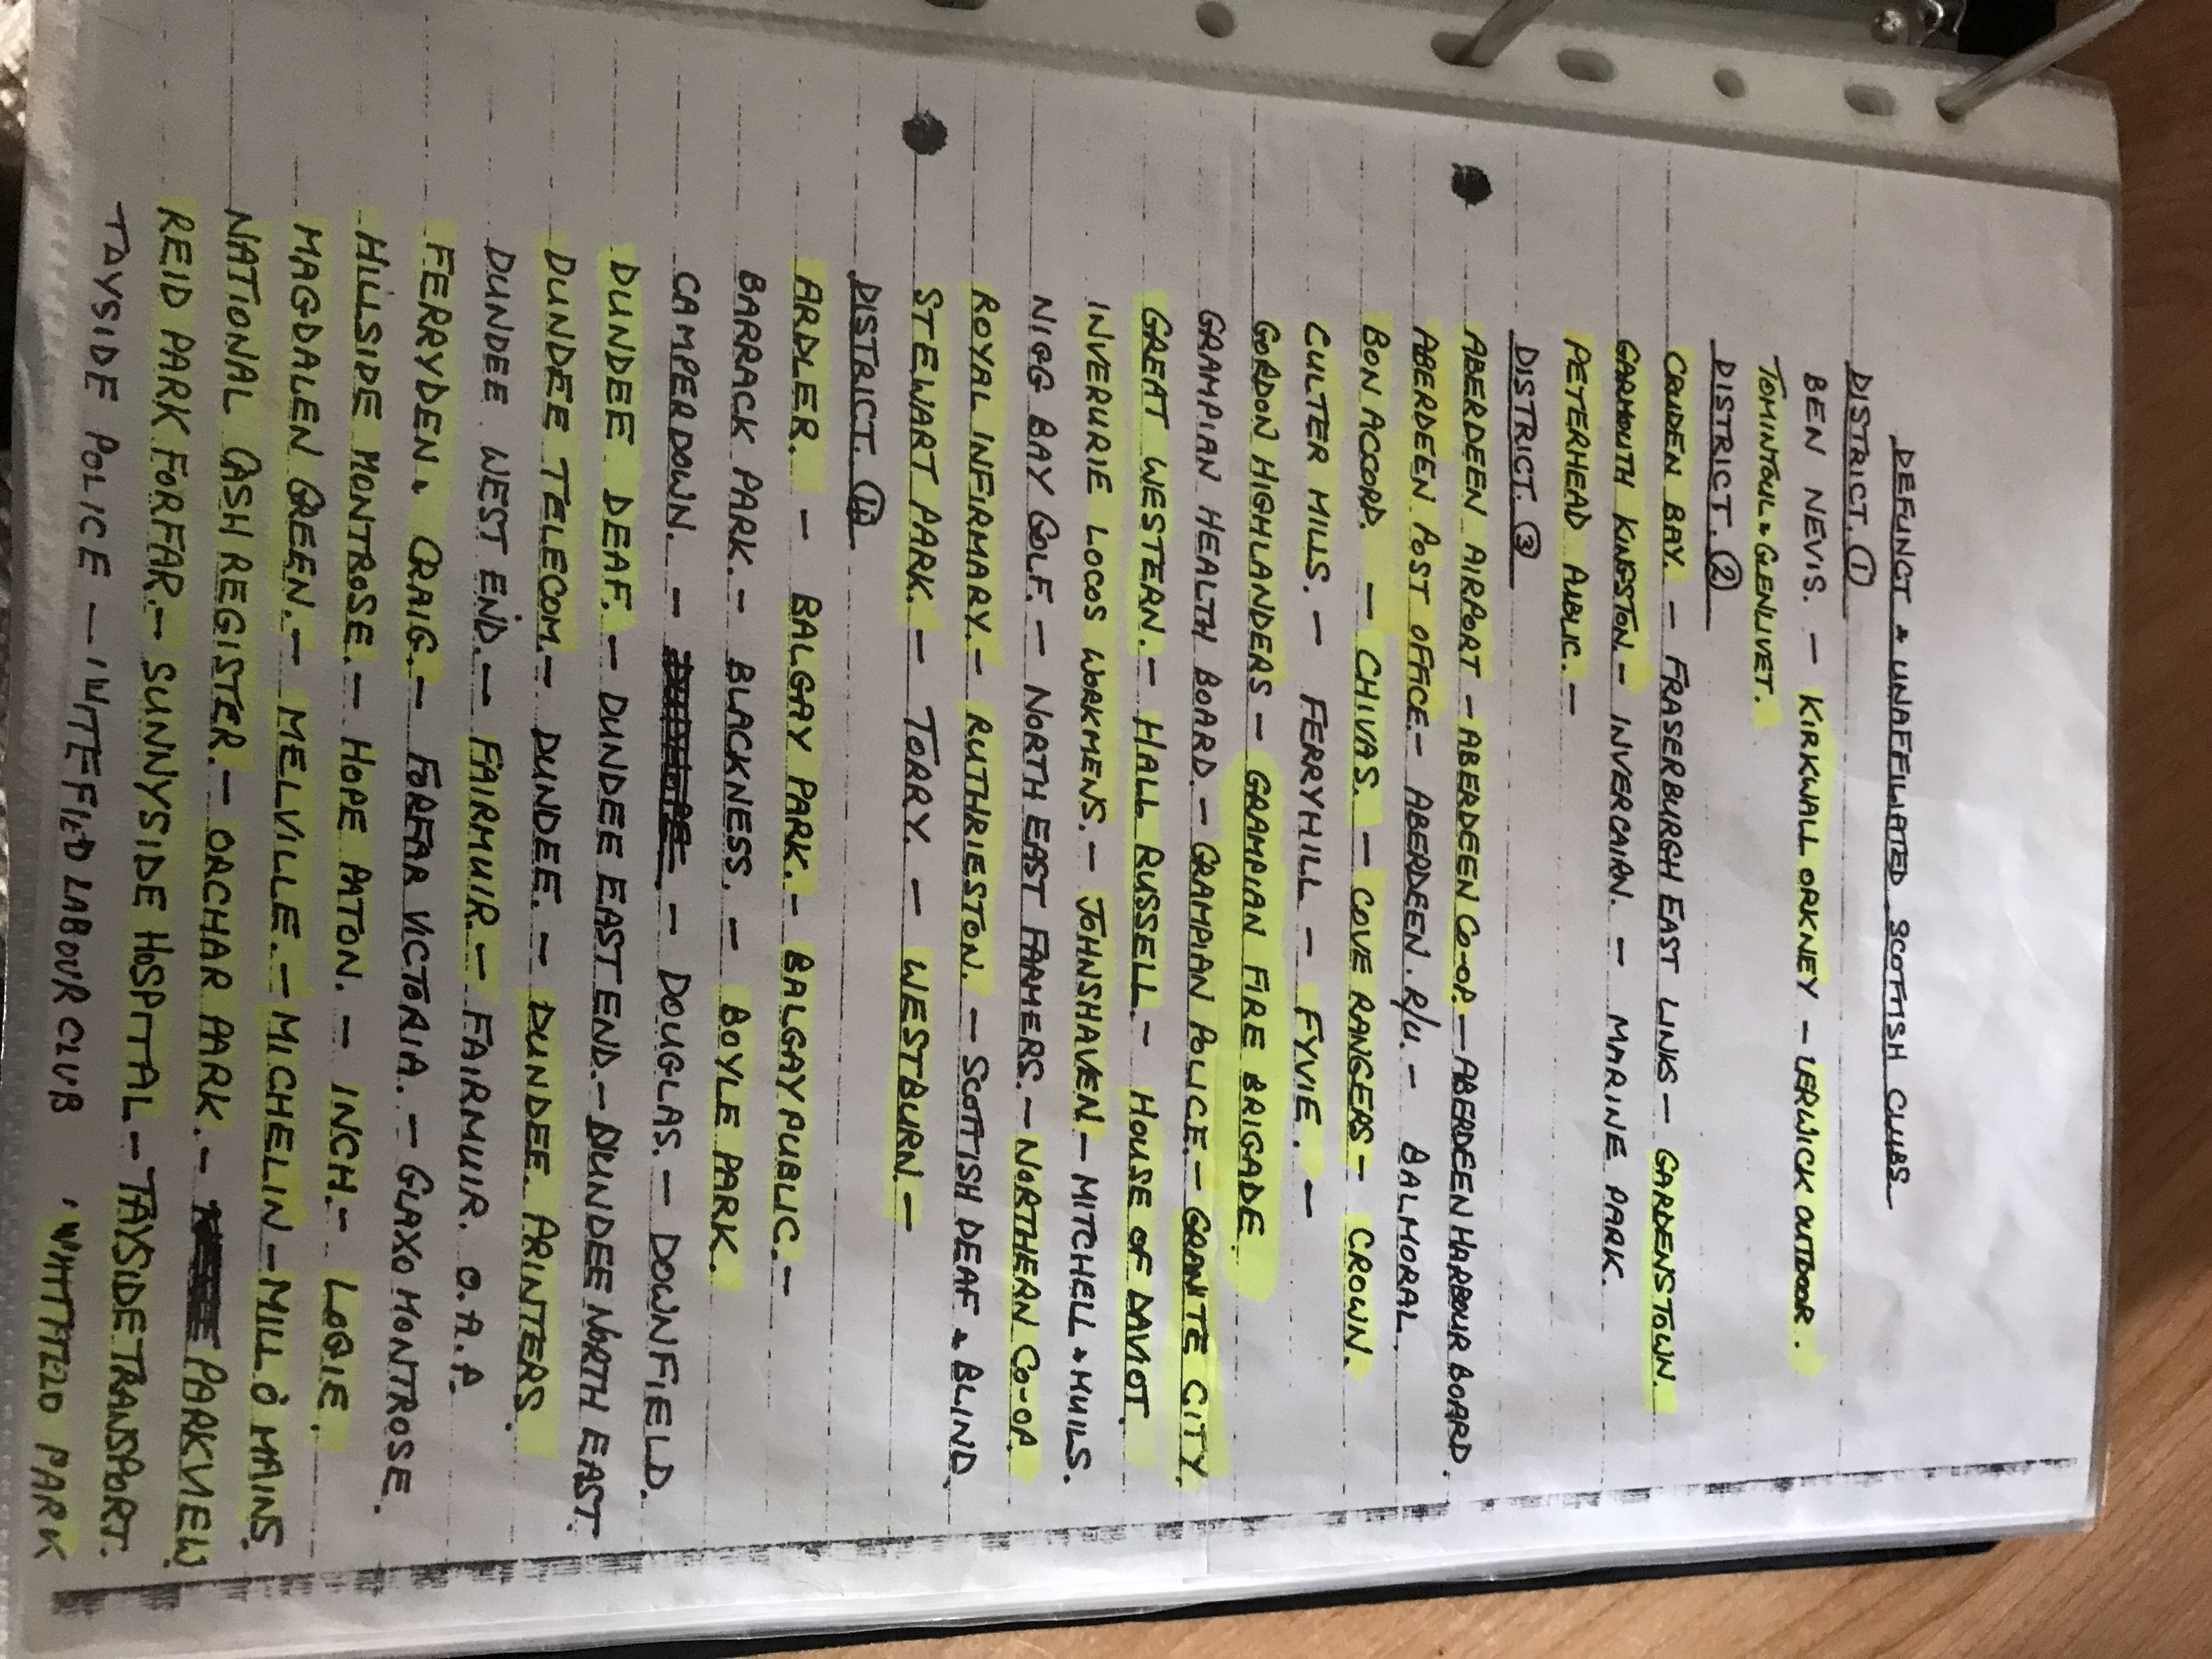 DEFUNCT & UNAFFILIATED SCOTTISH CLUBS
DISTRICT. ①
BEN NEVIS. — KIRKWALL ORKNEY — LERWICK OUTDOOR.
TOMINTOUL & GLENLIVET.
DISTRICT. ②
CRUDEN BAY. — FRASERBURGH EAST LINKS — GARDENSTOWN.
GARMOUTH KINGSTON. — INVERCAIRN. — MARINE PARK.
PETERHEAD PUBLIC. —
DISTRICT. ③
ABERDEEN AIRPORT — ABERDEEN CO-OP. — ABERDEEN HARBOUR BOARD.
ABERDEEN POST OFFICE. — ABERDEEN. R/U. — BALMORAL.
BON ACCORD. — CHIVAS. — COVE RANGERS — CROWN.
CULTER MILLS. — FERRYHILL — FYVIE. —
GORDON HIGHLANDERS — GRAMPIAN FIRE BRIGADE
GRAMPIAN HEALTH BOARD. — GRAMPIAN POLICE. — GRANITE CITY.
GREAT WESTERN. — HALL RUSSELL — HOUSE OF DAVIOT.
INVERURIE LOCOS WORKMENS. — JOHNSHAVEN — MITCHELL & MUILS.
NIGG BAY GOLF. — NORTH EAST FARMERS. — NORTHERN CO-OP.
ROYAL INFIRMARY. — RUTHRIESTON. — SCOTTISH DEAF & BLIND.
STEWART PARK. — TORRY. — WESTBURN. —
DISTRICT.
ARDLER. — BALGAY PARK. — BALGAY PUBLIC. —
BARRACK PARK. — BLACKNESS. — BOYLE PARK.
CAMPERDOWN. — — DOUGLAS. — DOWNFIELD.
DUNDEE DEAF. — DUNDEE EAST END. — DUNDEE NORTH EAST.
DUNDEE TELECOM. — DUNDEE. — DUNDEE. PRINTERS.
DUNDEE WEST END. — FAIRMUIR. — FAIRMUIR. O.A.P.
FERRYDEN & CRAIG. — FORFAR VICTORIA. — GLAXO MONTROSE.
HILLSIDE MONTROSE. — HOPE PATON. — INCH. — LOGIE.
MAGDALEN GREEN. — MELVILLE. — MICHELIN — MILL O MAINS.
NATIONAL CASH REGISTER. — ORCHAR PARK. — PARKVIEW
REID PARK FORFAR. — SUNNYSIDE HOSPITAL — TAYSIDE TRANSPORT.
TAYSIDE POLICE — LABOUR CLUB PARK